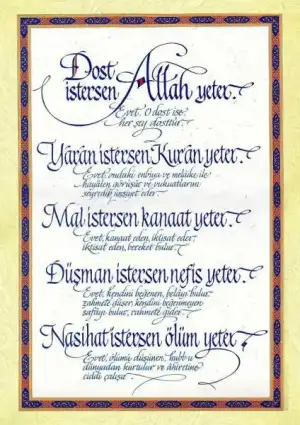 Dost
istersen Allah yeter.
Evet. O dost ise
her şey dosttur.
Yârân istersen Kur'ân yeter.
Evet, ondaki enbiya ve melâike ile
hayâlen görüşür ve vukuatlarını
seyredip ünsiyet eder.
Mal istersen kanaat yeter.
Evet, kanaat eden, iktisat eder;
iktisat eden, bereket bulur.
Düşman istersen nefis yeter.
Evet, kendini beğenen, belâyı bulur
zahmete düşer; kendini beğenmeyen
safâyı bulur, rahmete gider.
Nasihat istersen ölüm yeter.
Evet, ölümü düşünen, hubb-u
dünyadan kurtulur ve âhiretine
ciddî çalışır.